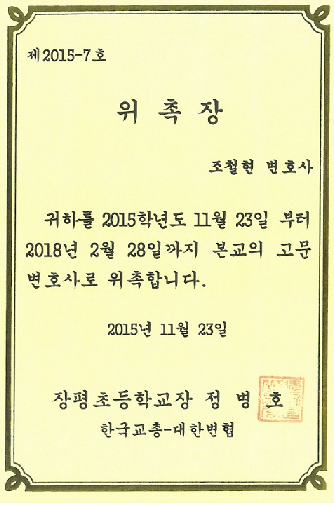 제2015-7호
위 촉 장
조철현 변호사
귀하를 2015학년도 11월 23일 부터
2018년 2월 28일까지 본교의 고문
변호사로 위촉합니다.
2015년 11월 23일
장평초등학교장 정 병 호
한국교총-대한변협